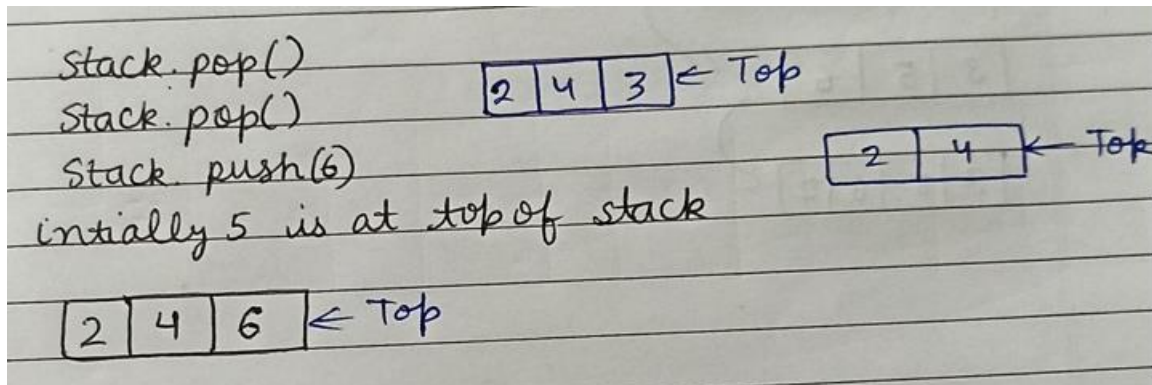 Stack.pop()
2 4 3 ← Top
Stack.pop()
2 4 ← Top
Stack. push(6)
intially 5 is at top of stack
2 4 6 ← Top